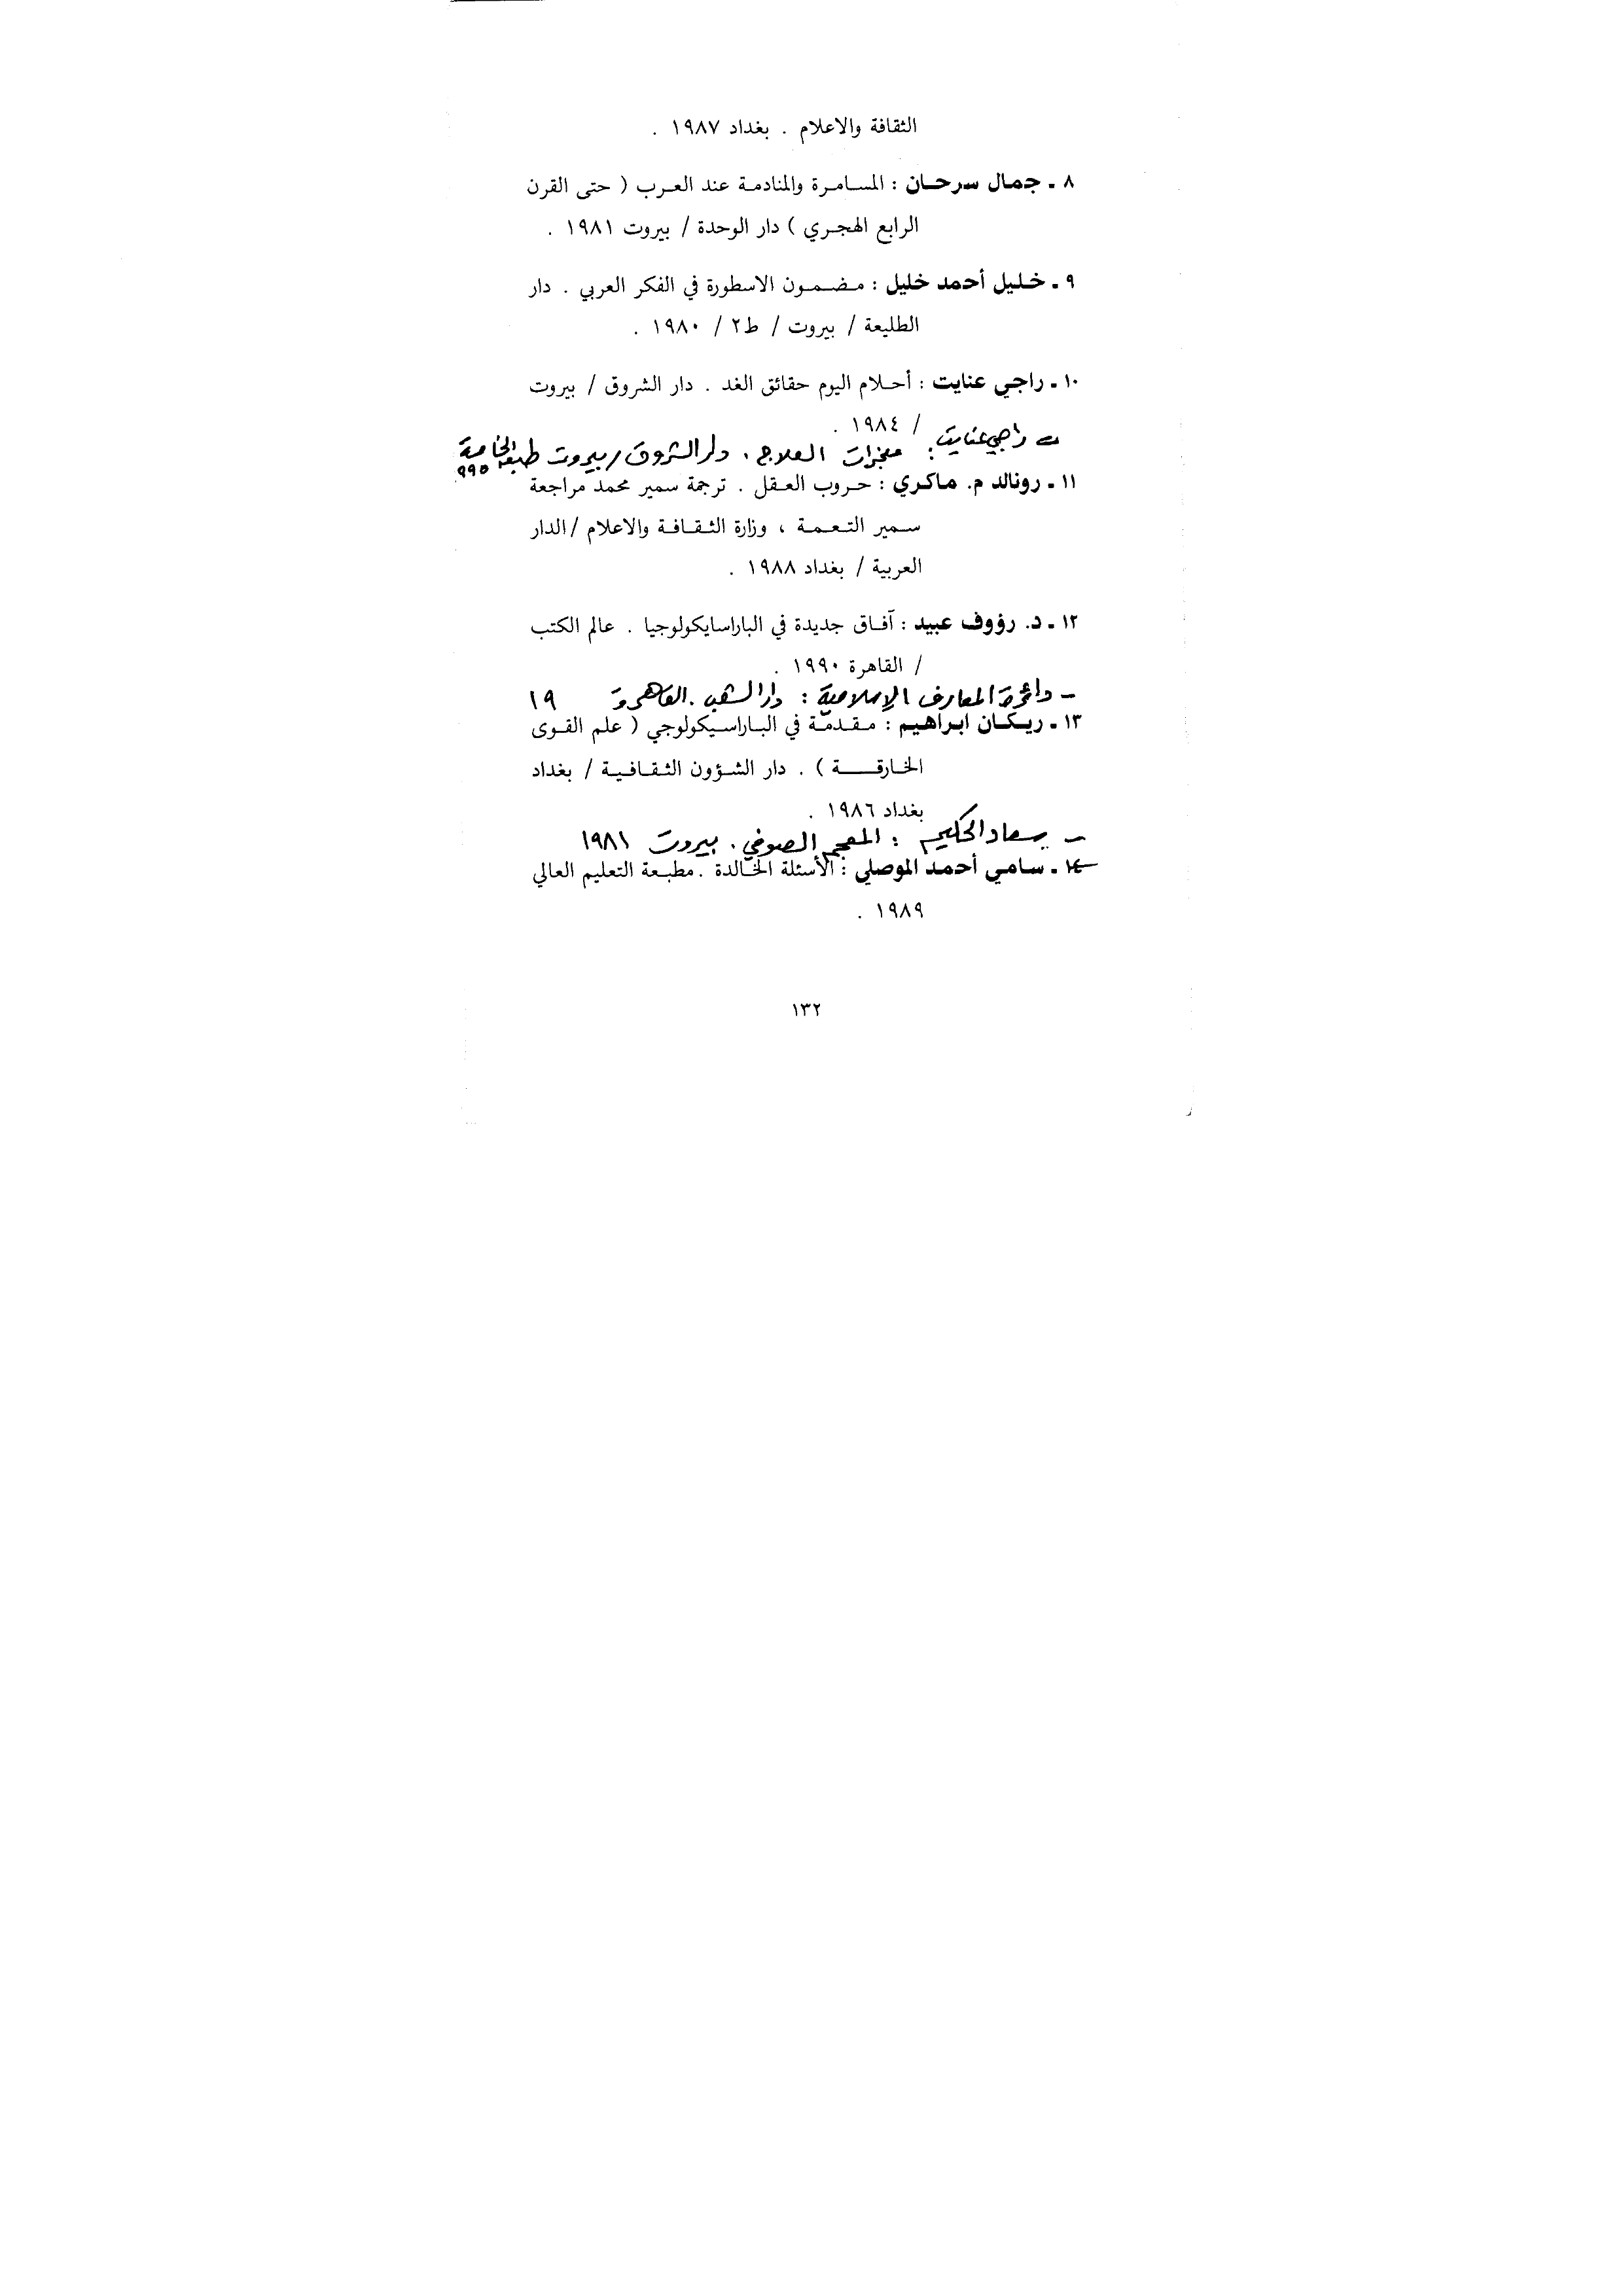 الثقافة والاعلام . بغداد ١٩٨٧ .
٨ - جمال سرحان : المسامرة والمنادمة عند العرب ( حتى القرن
الرابع الهجري ) دار الوحدة / بيروت ١٩٨١ .
٩ - خليل أحمد خليل : مضمون الاسطورة في الفكر العربي . دار
الطليعة / بيروت / ط٢ / ١٩٨٠ .
١٠ - راجي عنايت : أحلام اليوم حقائق الغد . دار الشروق / بيروت
/ ١٩٨٤ .
- راجي عنايت : معجزات العلاج . دار الشروق / بيروت طبعة الخامسة ٩٩٥
١١ - رونالد م. ماكري : حروب العقل . ترجمة سمير محمد مراجعة
سمير التعمة ، وزارة الثقافة والاعلام /الدار
العربية / بغداد ١٩٨٨ .
١٢ - د. رؤوف عبيد : آفاق جديدة في الباراسايكولوجيا . عالم الكتب
/ القاهرة ١٩٩٠ .
- دائرة المعارف الإسلامية : دار الشعب . القاهرة ١٩
١٣ - ريكان ابراهيم : مقدمة في الباراسيكولوجي ( علم القوى
الخارقة ) . دار الشؤون الثقافية / بغداد
بغداد ١٩٨٦ .
- سعاد الحكيم : المعجم الصوفي . بيروت ١٩٨١
١٤ - سامي أحمد الموصلي : الأسئلة الخالدة . مطبعة التعليم العالي
١٩٨٩ .
١٣٢